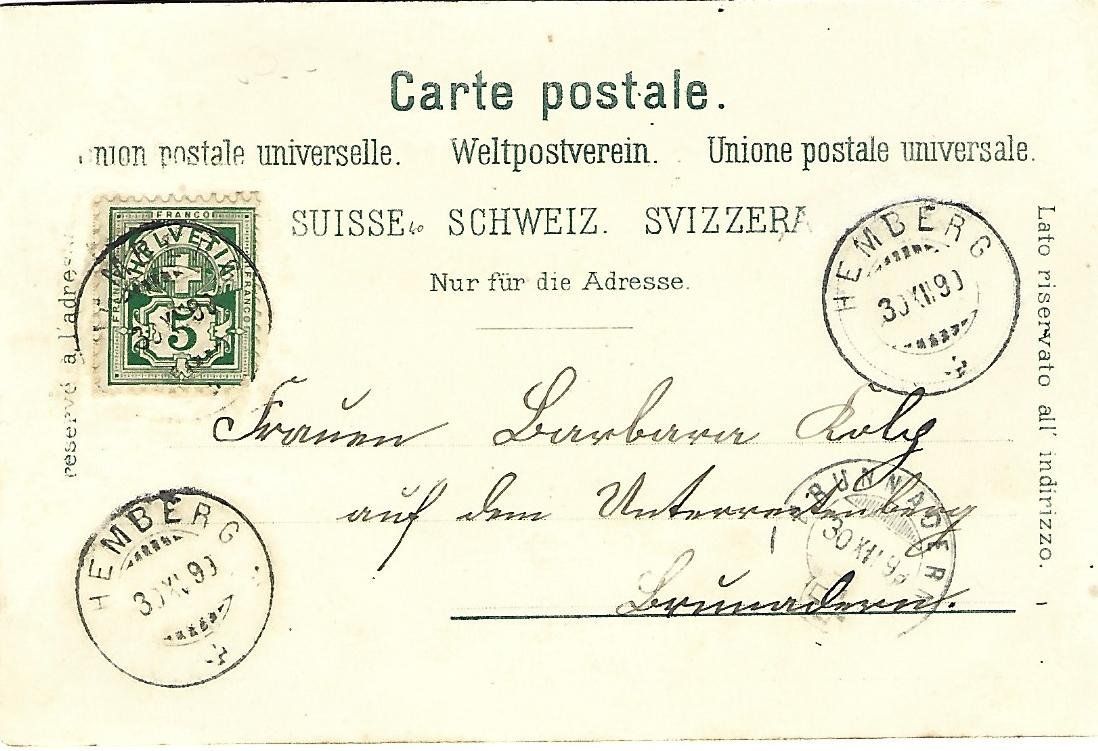 Carte postale.
union postale universelle. Weltpostverein. Unione postale universale.
SUISSE. SCHWEIZ. SVIZZERA
Nur für die Adresse.
reservé à l'adresse
Lato riservato all' indirizzo.
FRANCO
FRANCO
FRANCO
HELVETIA
5
HEMBERG
30 XII 90
HEMBERG
30 XII 90
BRUNNADERN
30 XII 9
Frauen Barbara Kolp
auf dem
Brunnadern.